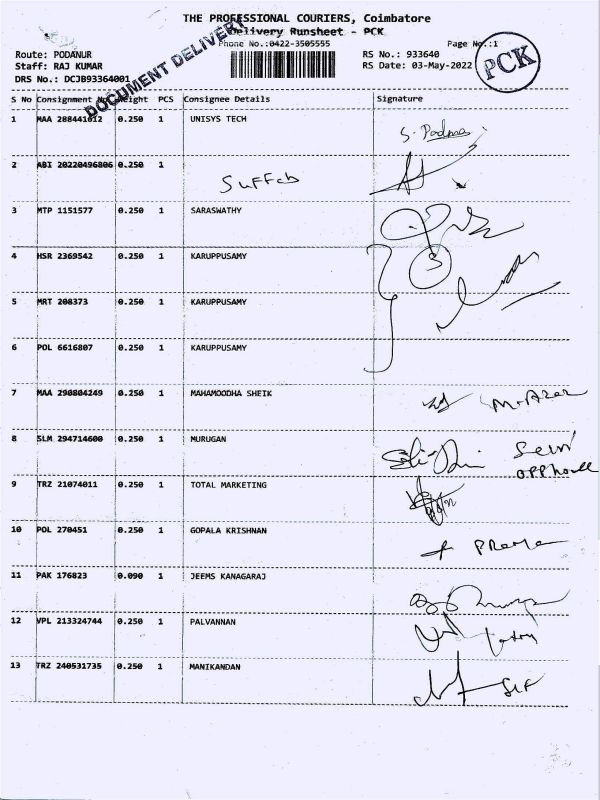 THE PROFESSIONAL COURIERS, Coimbatore
Delivery Runsheet - PCK
Phone No.:0422-3505555
Page No.:1
Route: PODANUR
RS No.: 933640
Staff: RAJ KUMAR
RS Date: 03-May-2022
DRS No.: DCJB93364001
PCK
DOCUMENT DELIVERY
S No Consignment No Weight PCS Consignee Details Signature
1 MAA 288441012 0.250 1 UNISYS TECH S. Padma
2 ABI 20220496806 0.250 1
3 MTP 1151577 0.250 1 SARASWATHY
4 HSR 2369542 0.250 1 KARUPPUSAMY 3
5 MRT 208373 0.250 1 KARUPPUSAMY
6 POL 6616807 0.250 1 KARUPPUSAMY
7 MAA 290804249 0.250 1 MAHAMOODHA SHEIK
8 SLM 294714600 0.250 1 MURUGAN
9 TRZ 21074011 0.250 1 TOTAL MARKETING
10 POL 270451 0.250 1 GOPALA KRISHNAN
11 PAK 176823 0.090 1 JEEMS KANAGARAJ
12 VPL 213324744 0.250 1 PALVANNAN
13 TRZ 240531735 0.250 1 MANIKANDAN